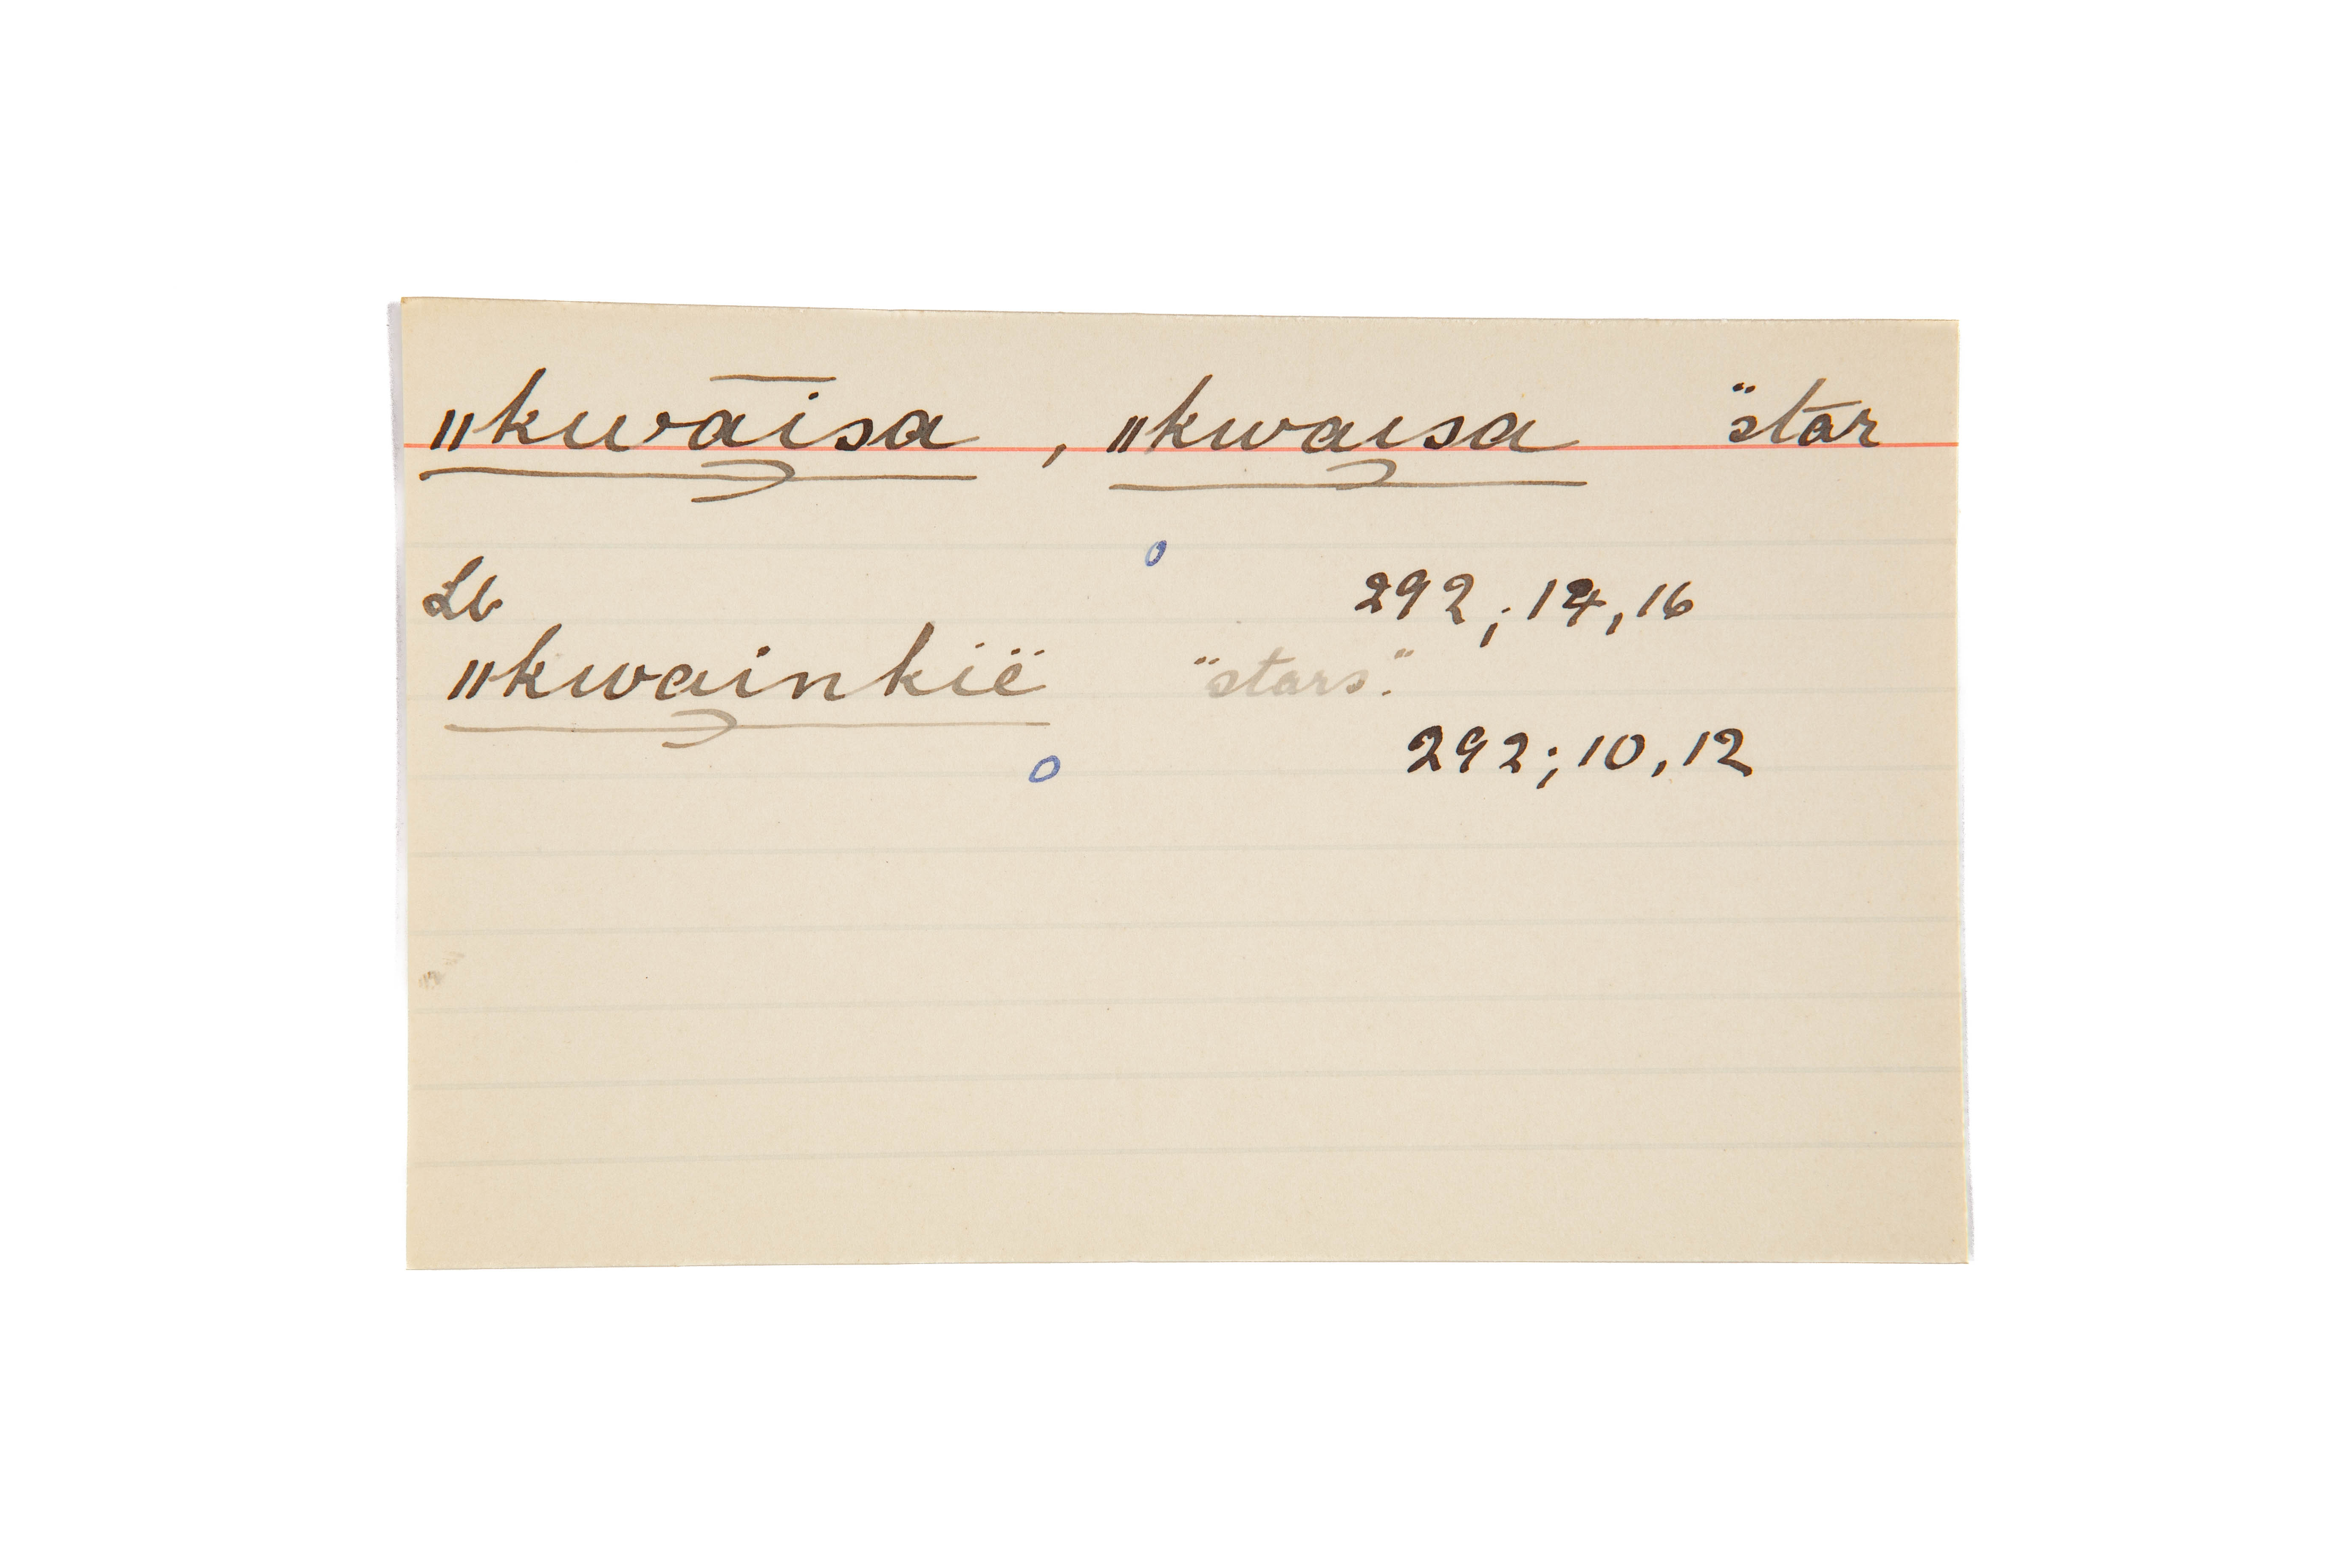 ǁkwa̱̅isa , ǁkwa̱isa "star
o
Lb 292; 14, 16
ǁkwa̱inkië "stars".
o 292; 10, 12